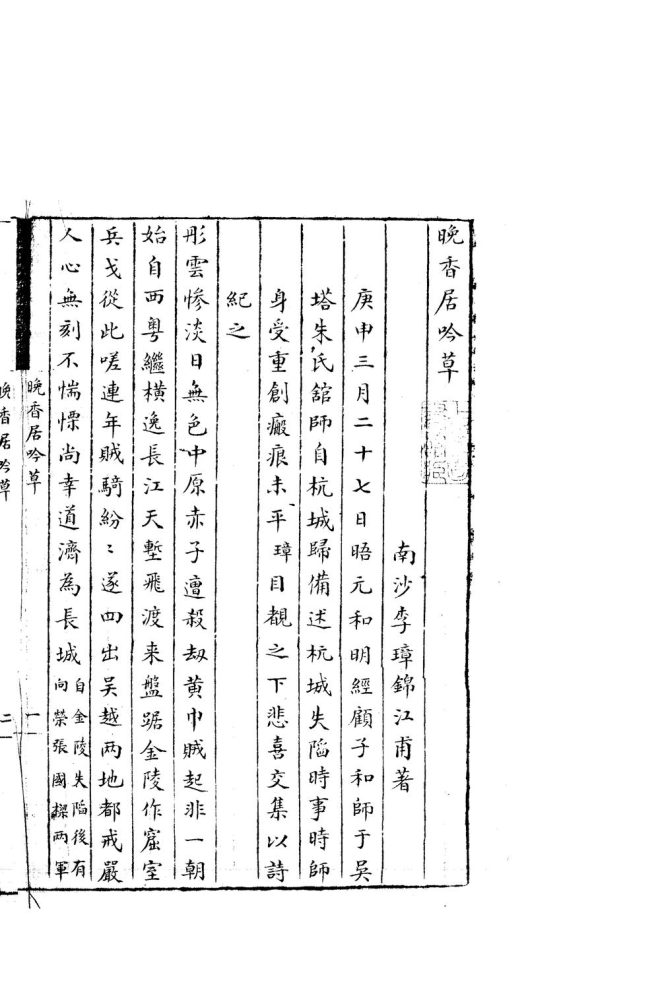 晚香居吟草
南沙李璋錦江甫著
庚申三月二十七日晤元和明經顧子和師于吴
塔朱氏舘師自杭城歸備述杭城失陥時事時師
身受重創瘢痕未平璋目覩之下悲喜交集以詩
紀之
彤雲惨淡日無色中原赤子遭殺刼黄巾賊起非一朝
始自西粤繼横逸長江天塹飛渡来盤踞金陵作窟室
兵戈從此嗟連年賊騎紛〻遂四出吴越兩地都戒嚴
人心無刻不惴慄尚幸道濟為長城自金陵失陥後有
向榮張國樑兩軍
晚香居吟草
一
晚香居吟草
二